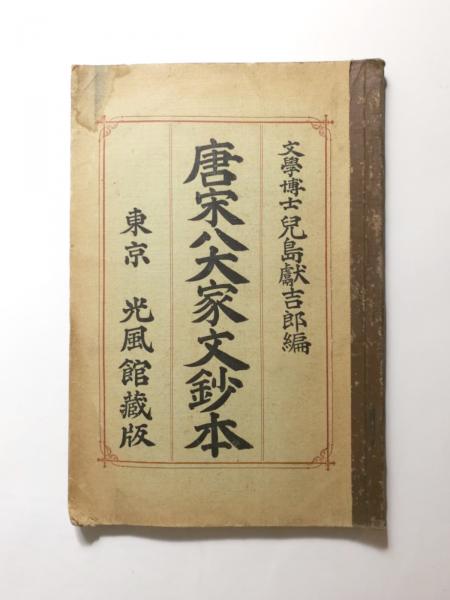 文學博士 兒島獻吉郎編
唐宋八大家文鈔本
東京 光風館藏版